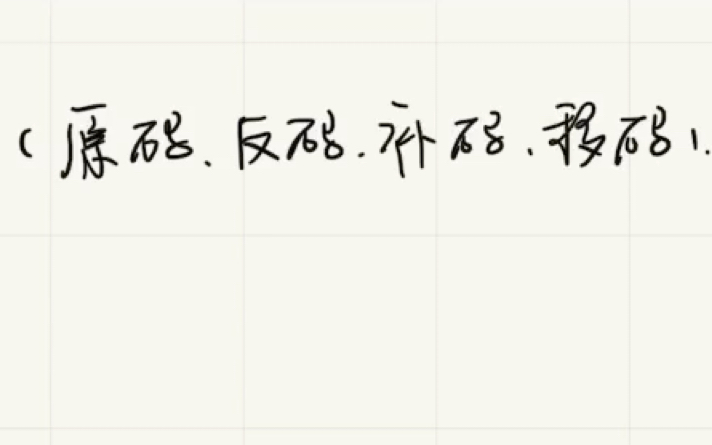 （原码、反码、补码、移码）.